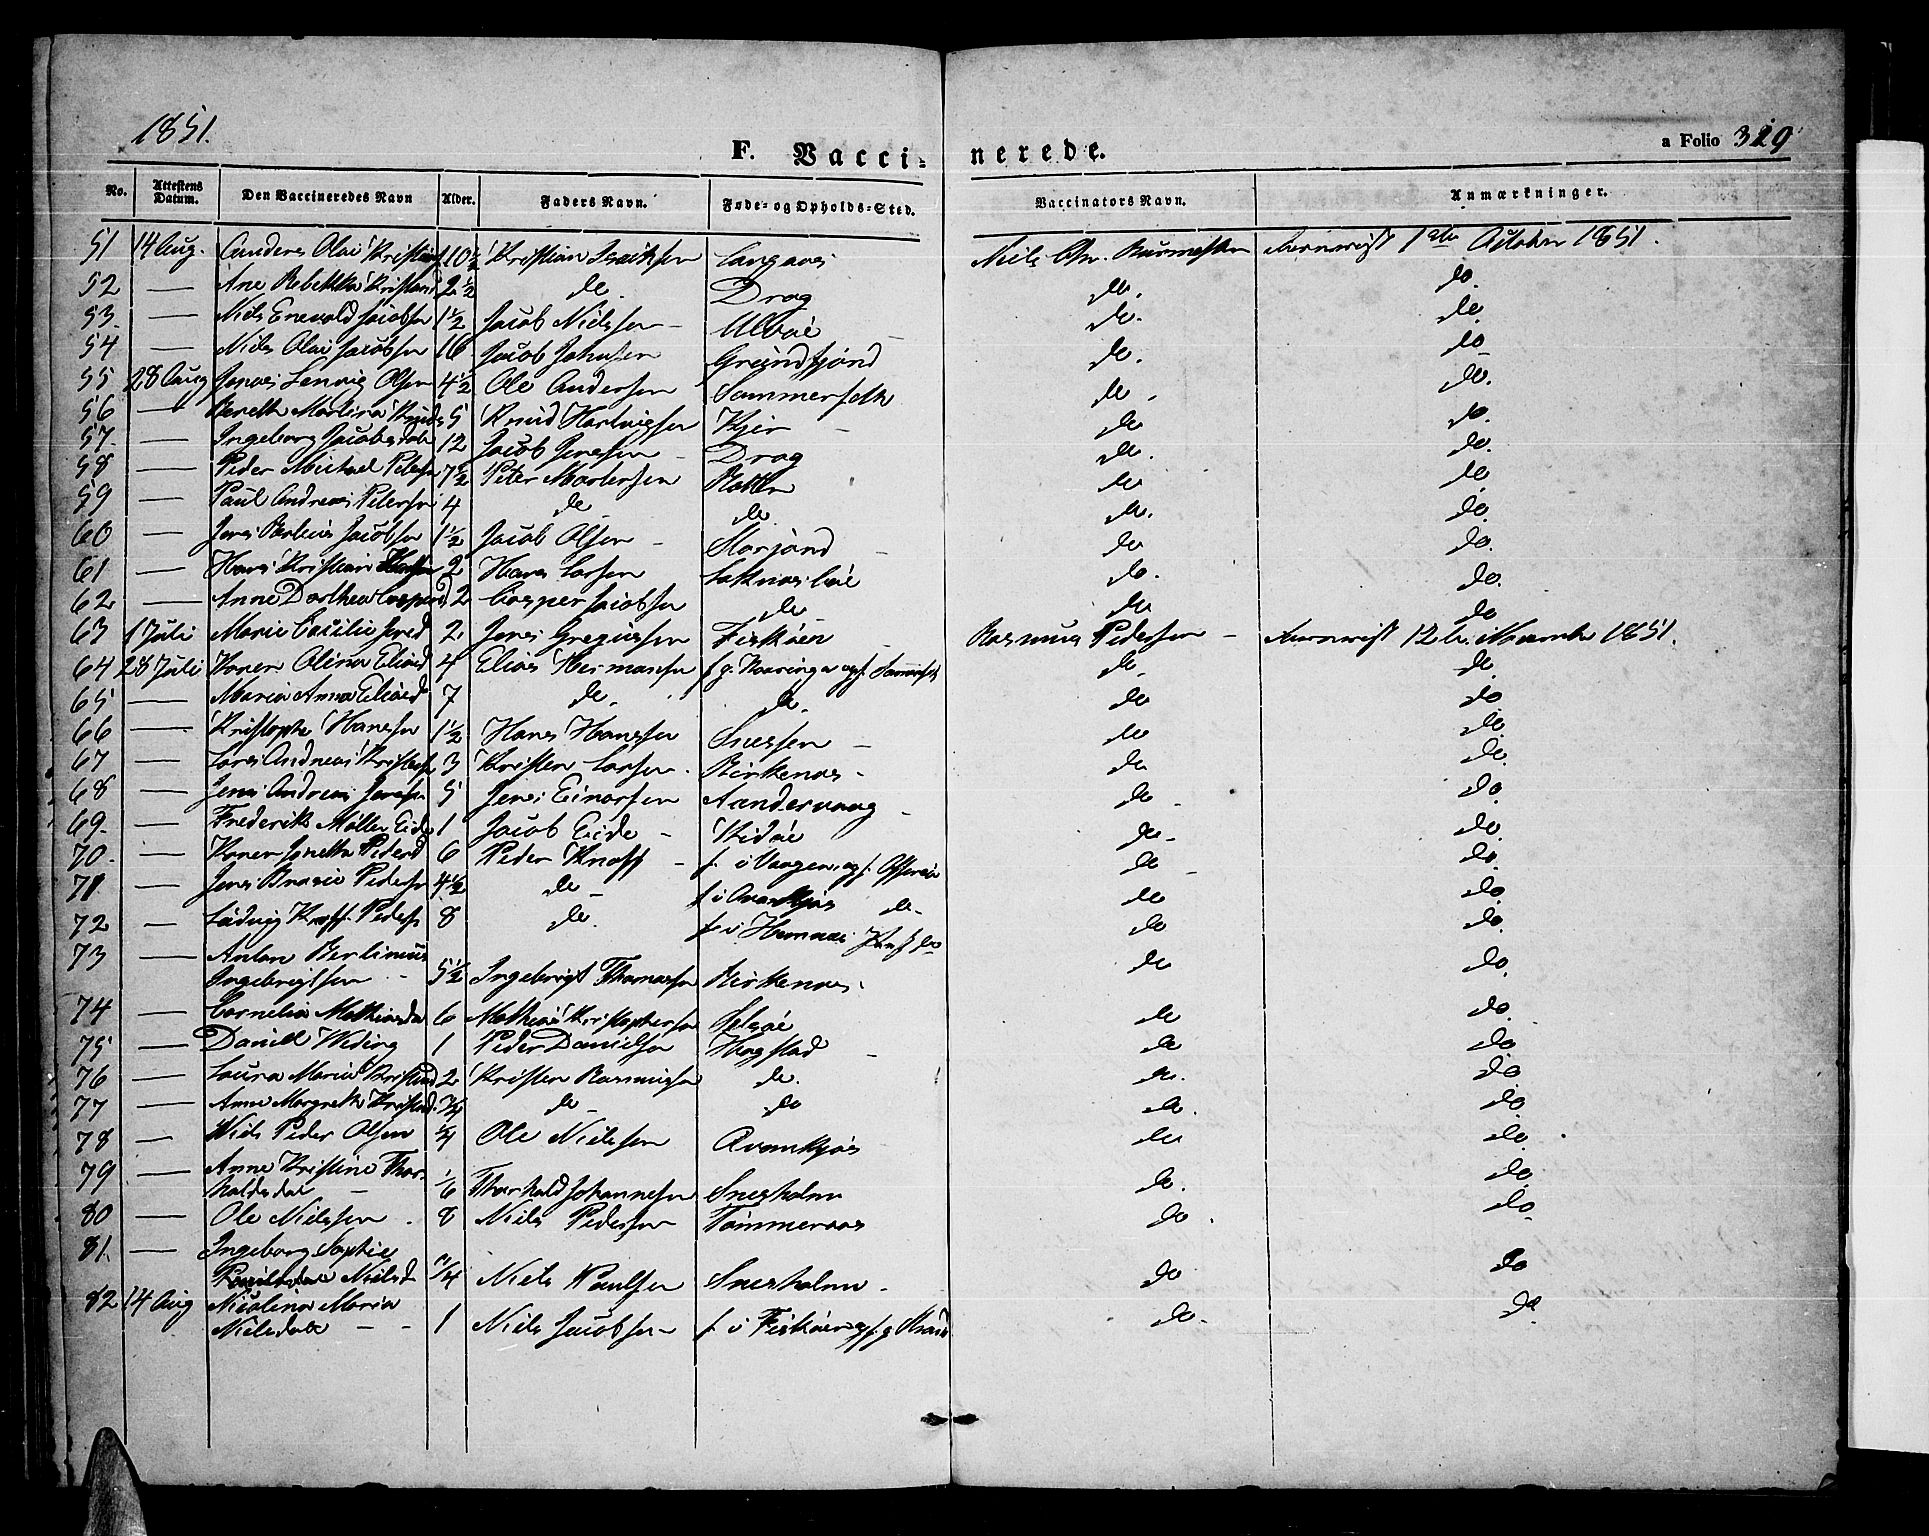 1851.
F. Vacci-nerede.
a Folio 329
No. Attestens Datum. Den Vaccineredes Navn Alder. Faders Navn. Føde- og Opholds-Sted. Vaccinators Navn. Anmærkninger.
51 14 Aug. Anders Olai 10½ Kristian Isaksen Langaas Niels Chr. Burmester 1ste October 1851.
52 — Ane Rebekka 2½ do. Drag do. do.
53. — Niels Enevold Jacobsen 1½ Jacob Nielssen — Ulvøe do. do.
54 — Niels Olai Jacobsen 16 Jacob Johnsen Grundfjord do. do
55 28 Aug Jonas Olsen 4½ Ole Andersen Sommerseth do. do.
56 — Bereth Martina Knuds 5 Knud Hartvigsen Kjer do do.
57. — Ingeborg Jacobsdat 12 Jacob Jensen — Drag do. do.
58 — Peder Michael Petersen 7½ Peter Mortensen do do
59 — Paul Andreas Petersen 4 do do do. do.
60 — Jens Jacobsen 1½ Jacob Olsen — Storjord do do.
61 — Hans Kristian 2 Hans Larsen do. do.
62 — Anne Dorthea 2 Casper Jacobsen do do do
63 1 Juli Marie Cecilie Jensd 2. Jens Gregussen Fiskøen Rasmus Pedersen — 12te 1851.
64 28 Juli Karen Olina Eliasd 4 Elias Hermansen do. do.
65 — Maria Anna Eliasd 7 do. do. do do
66 — Kristopher Hanssen 1½ Hans Hanssen Snessen — do do.
67 — Lars Andreas 3 Kristen Larsen. Birkenæs. do do.
68 — Jens Andreas Jensen 5 Jens Einarsen Aandervaag do do.
69. — Frederik Møller Eide 1 Jacob Eide — Kidøe do — do.
70. — Karen Jonetta Pedersd 6 Peder Knoff — f. i Vaagen og f. do do.
71 — Jens Brasie Pedersen 4½ do — f i Avankjøs do. do do
72 — Ludvig Knoff Peders 8 do. do do.
73 — Anton Berlinius
Ingebrigtsen 5½ Ingebrigt Thomassen Birkenæs. do do.
74 — Cornelia Mathiasda 6 Mathias Kristophersen Selsøe do do.
75 — Daniel Weding 1 Peder Danielsen Hagstad do do
76 — Laura Maria Kristend 2 Kristen Rasmusen do. do. do
77 — Anne Margreth Kristend. ¾ do — do do. do
78 — Niels Peder Olsen ¼ Ole Nielssen Avankjøs do do
79 — Anne Kristine Thor-
haldsdat — 1/6 Thorhald Johannesen Snesholm do. do
80 — Ole Nielssen 8 Niels Pedersen Tømmeraas do. do
81. — Ingeborg Sophie
Nielsd ¾ Niels Paulsen Snesholm do do
82 14 Aug Nicolina Maria
Nielsdat — 1 Niels Jacobsen f. i Fiskøen do. do.